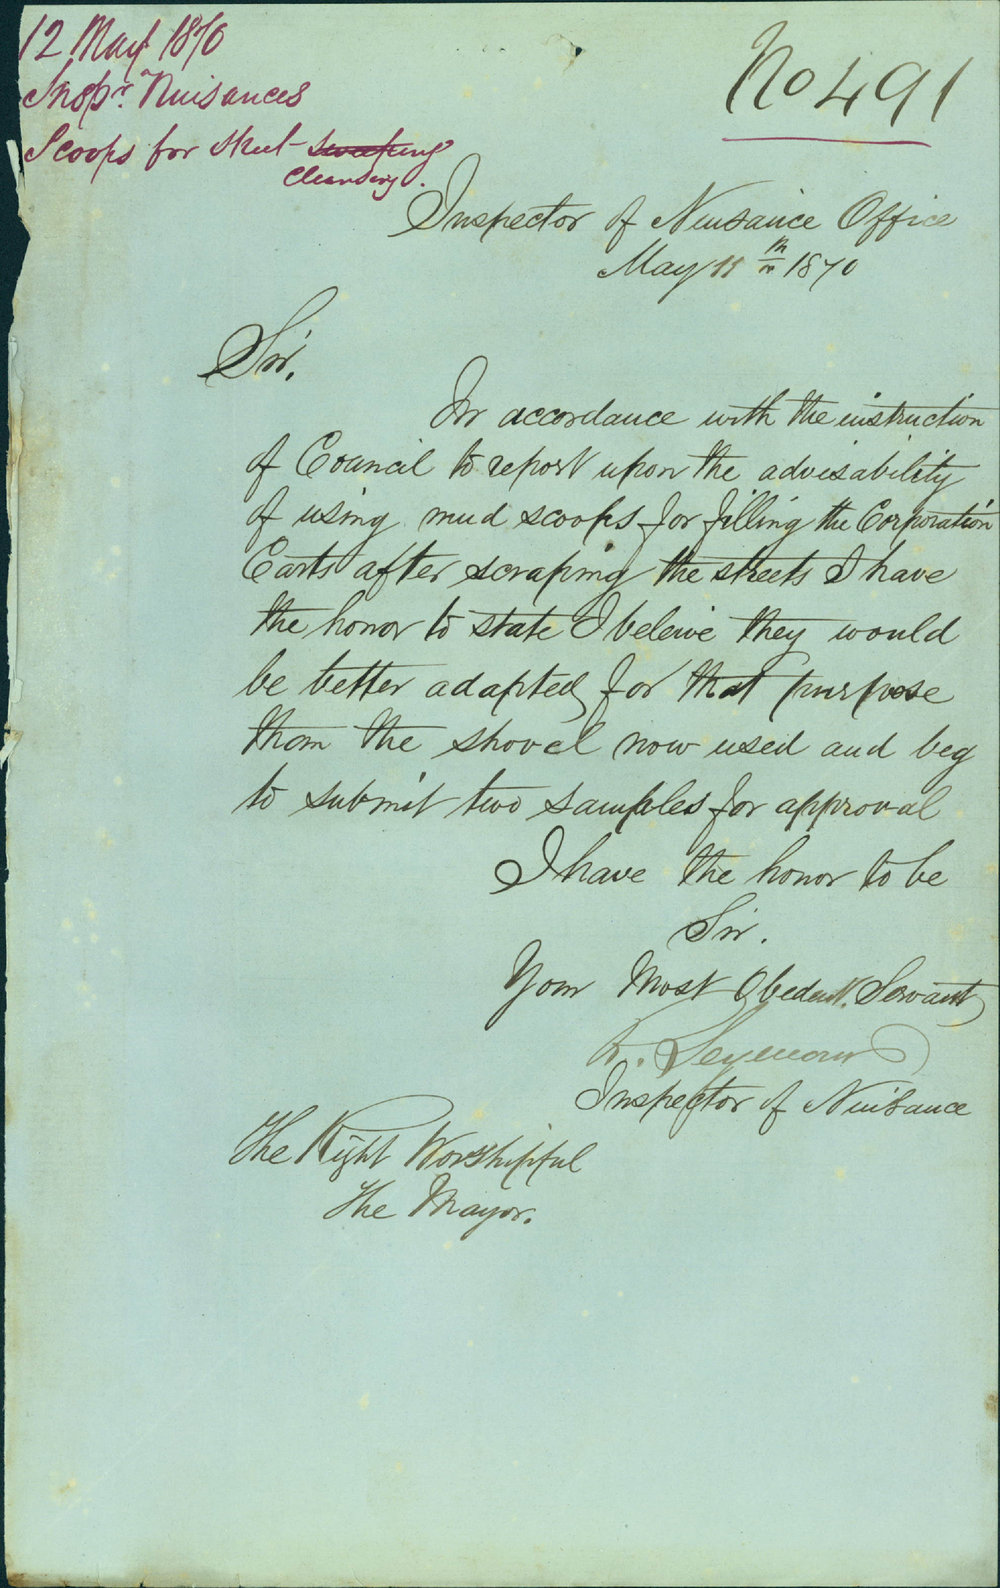 12 May 1870
Inspr. Nuisances
Scoops for street sweeping
cleansing.
No 491
Inspector of Nuisance Office
May 11th 1870
Sir,
In accordance with the instruction
of Council to report upon the advisability
of using mud scoops for filling the Corporation
Carts after scraping the streets I have
the honor to state I beleive they would
be better adapted for that purpose
than the shovel now used and beg
to submit two samples for approval
I have the honor to be
Sir.
Your Most Obedient Servant
R. Seymour
Inspector of Nuisance
The Right Worshipful
The Mayor.